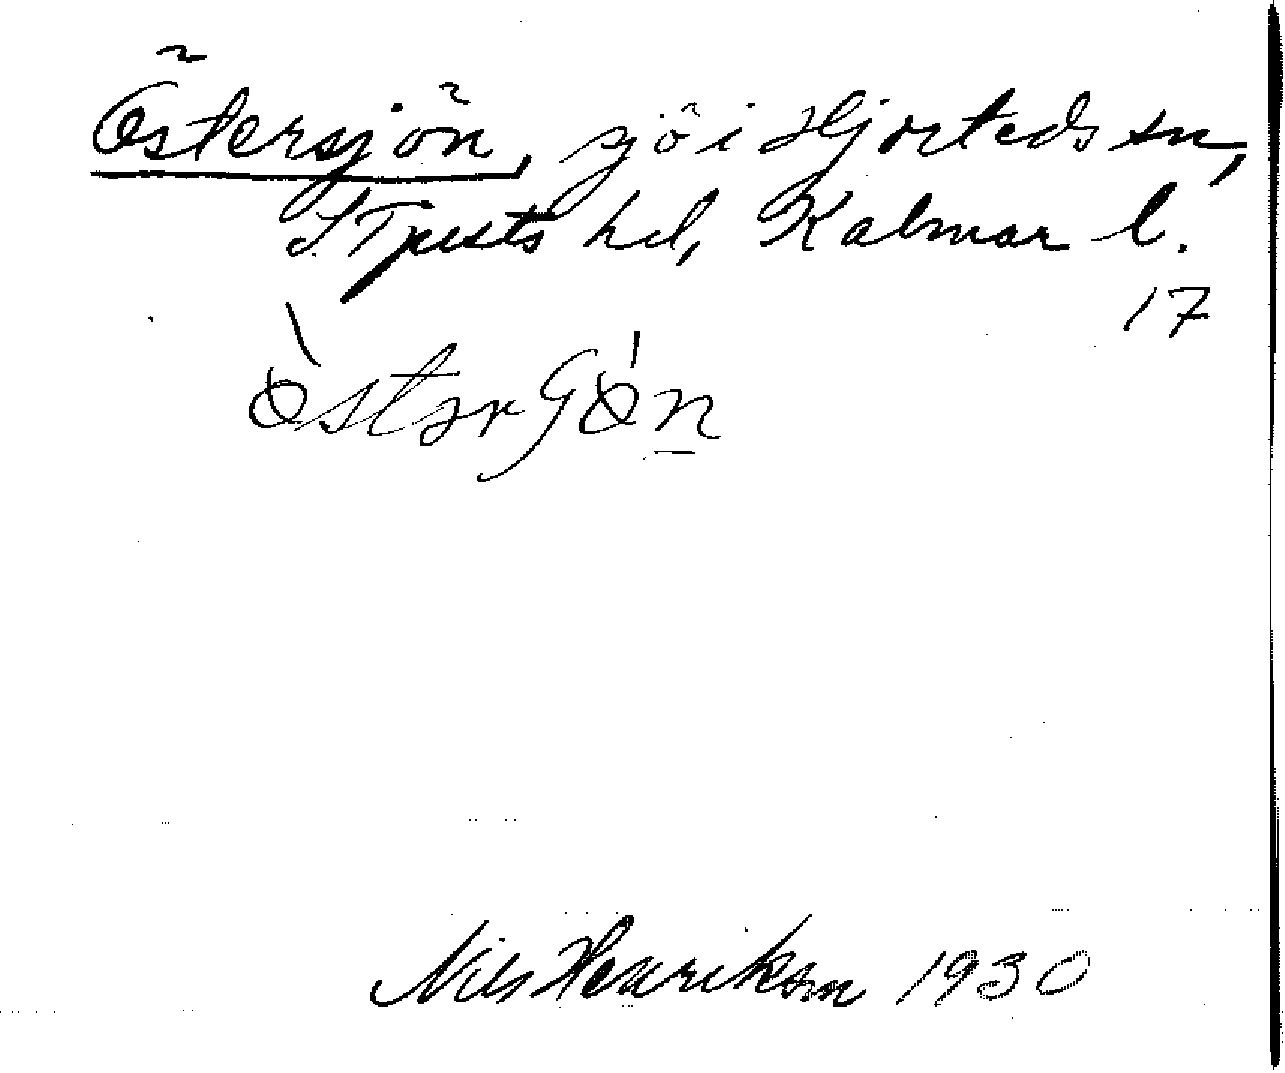 Östersjön, sjö i Hjorteds sn,
S. Tjusts hd, Kalmar l.
17
Nils Henriksson 1930